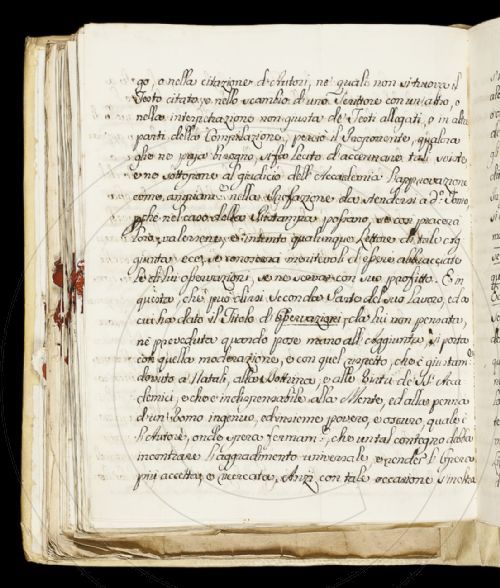 go, o nella citazione d'Autori, ne' quali non si trova il
Testo citato, o nello scambio di uno Scrittore con un'altro, o
nella interpretazione non giusta de' Testi allegati, o in altra
parti della Compilazione, perciò il Proponente, qualora
che ne paja bisogno, si fa lecito di accennare tali sviste
e ne sottopone al giudicio dell'Accademia l'approvazione
come anziane nella Prefazione da stendersi a d.º Tomo
nel caso della Ristampa possano, se così piacerà
loro, valersene, e intanto qualunque Lettore di tale
giunta ecc., se conoscerà meritevoli d'essere abbracciate
le di lui osservazioni, se ne serva con suo profitto. E in
questa, che può dirsi Seconda Parte del suo Lavoro, ed a
cui ha dato il Titolo di Osservazioni, da lui non pensata,
nè preveduta quando pose mano all'Aggiunta, si porta
con quella moderazione, e con quel rispetto, che è giustam.e
dovuto a' Natali, alla Dottrina, e alla Virtù de' SS.i Acca
demici, e che è indispensabile alla Mente, ed alla penna
d'un Uomo ingenuo, ed insieme povero, e oscuro, quale è
l'Autore, onde spera fermam.e, che un tal contegno debba
incontrare l'aggradimento universale, e render l'Opera
più accetta, e ricercata. Anzi con tale occasione